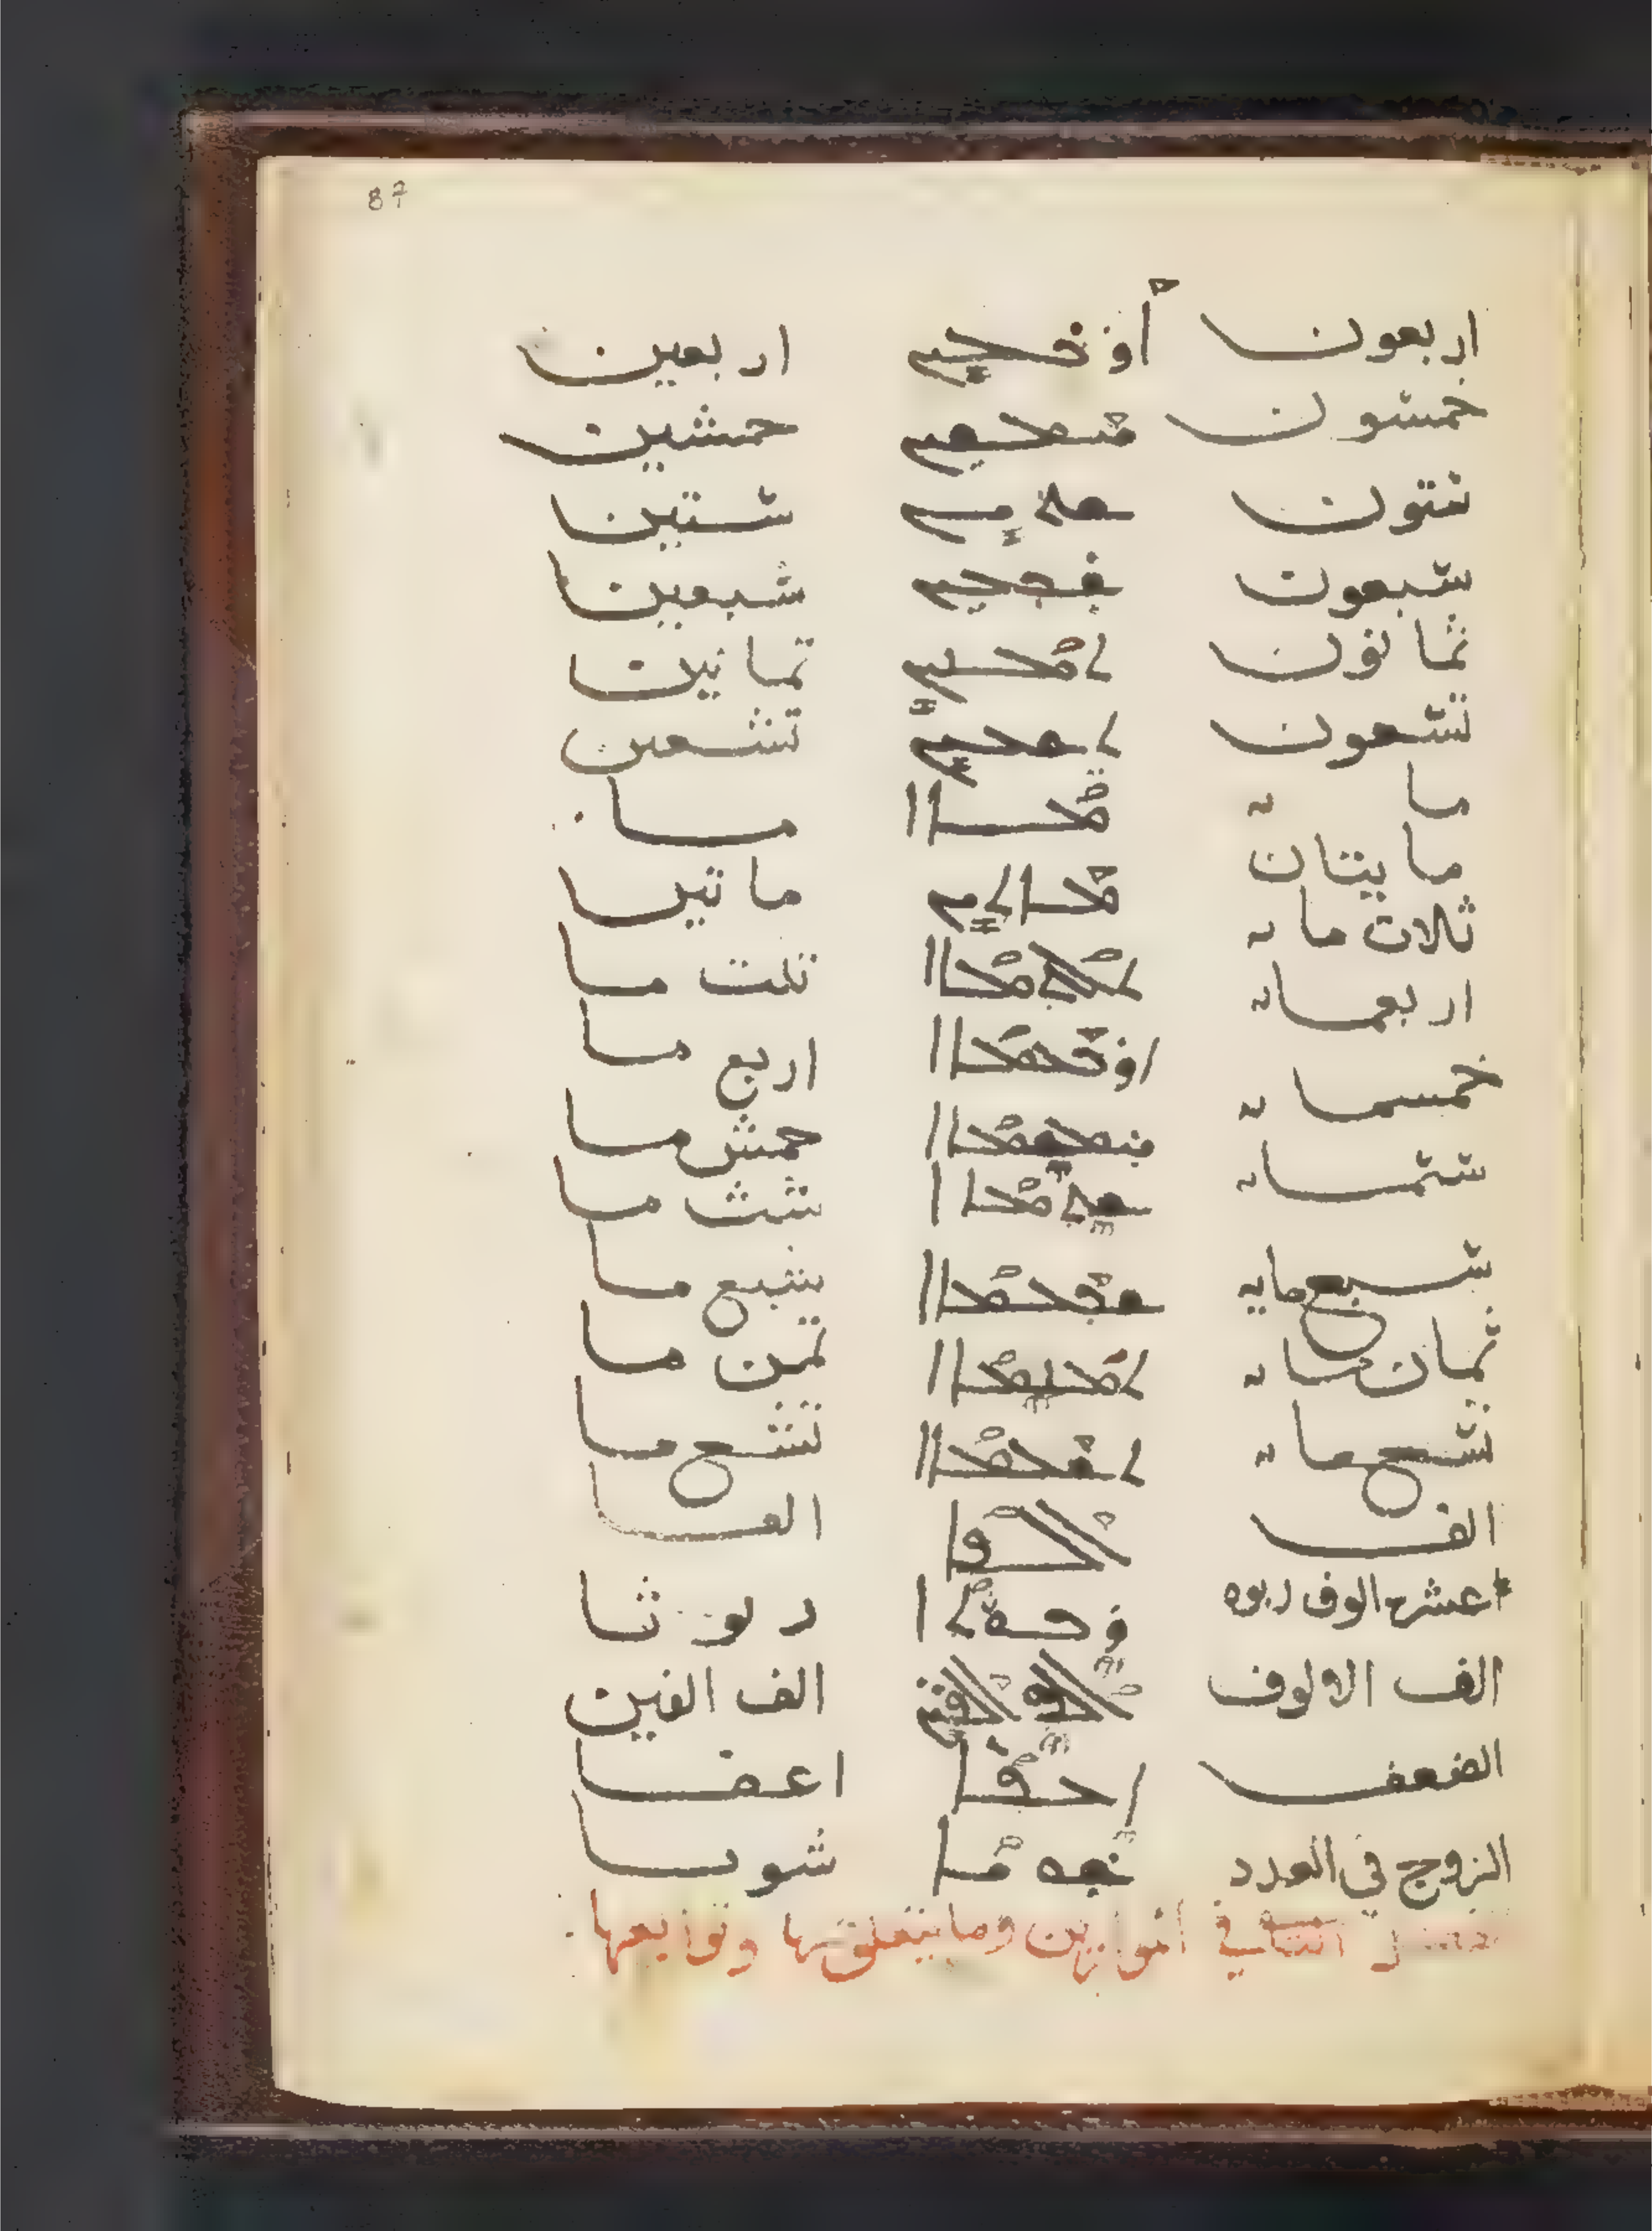 87
اربعون ܐܪܒܥܝܢ اربعين
خمسون ܚܡܫܝܢ حمشين
ستون ܫܬܝܢ شتين
سبعون ܫܒܥܝܢ شبعين
ثمانون ܬܡܢܝܢ تمانين
تسعون ܬܫܥܝܢ تشعين
مايه ܡܐܐ ما
مايتان ܡܐܬܝܢ ماتين
ثلاث مايه ܬܠܬܡܐܐ تلت ما
اربعمايه ܐܪܒܥܡܐܐ اربع ما
خمسمايه ܚܡܫܡܐܐ حمش ما
ستمايه ܫܬܡܐܐ شت ما
سبع مايه ܫܒܥܡܐܐ شبع ما
ثمان مايه ܬܡܢܡܐܐ تمن ما
تسع مايه ܬܫܥܡܐܐ تشع ما
الف ܐܠܦܐ الفا
عشره الوف ربوه ܪܒܘܬܐ ربوثا
الف الالوف ܐܠܦ ܐܠܦܝܢ الف الفين
الضعف ܐܥܦܐ اعفا
الزوج في العدد ܫܘܝܐ شويا
الثاني في الموازين وما يتعلق بها وتوابعها